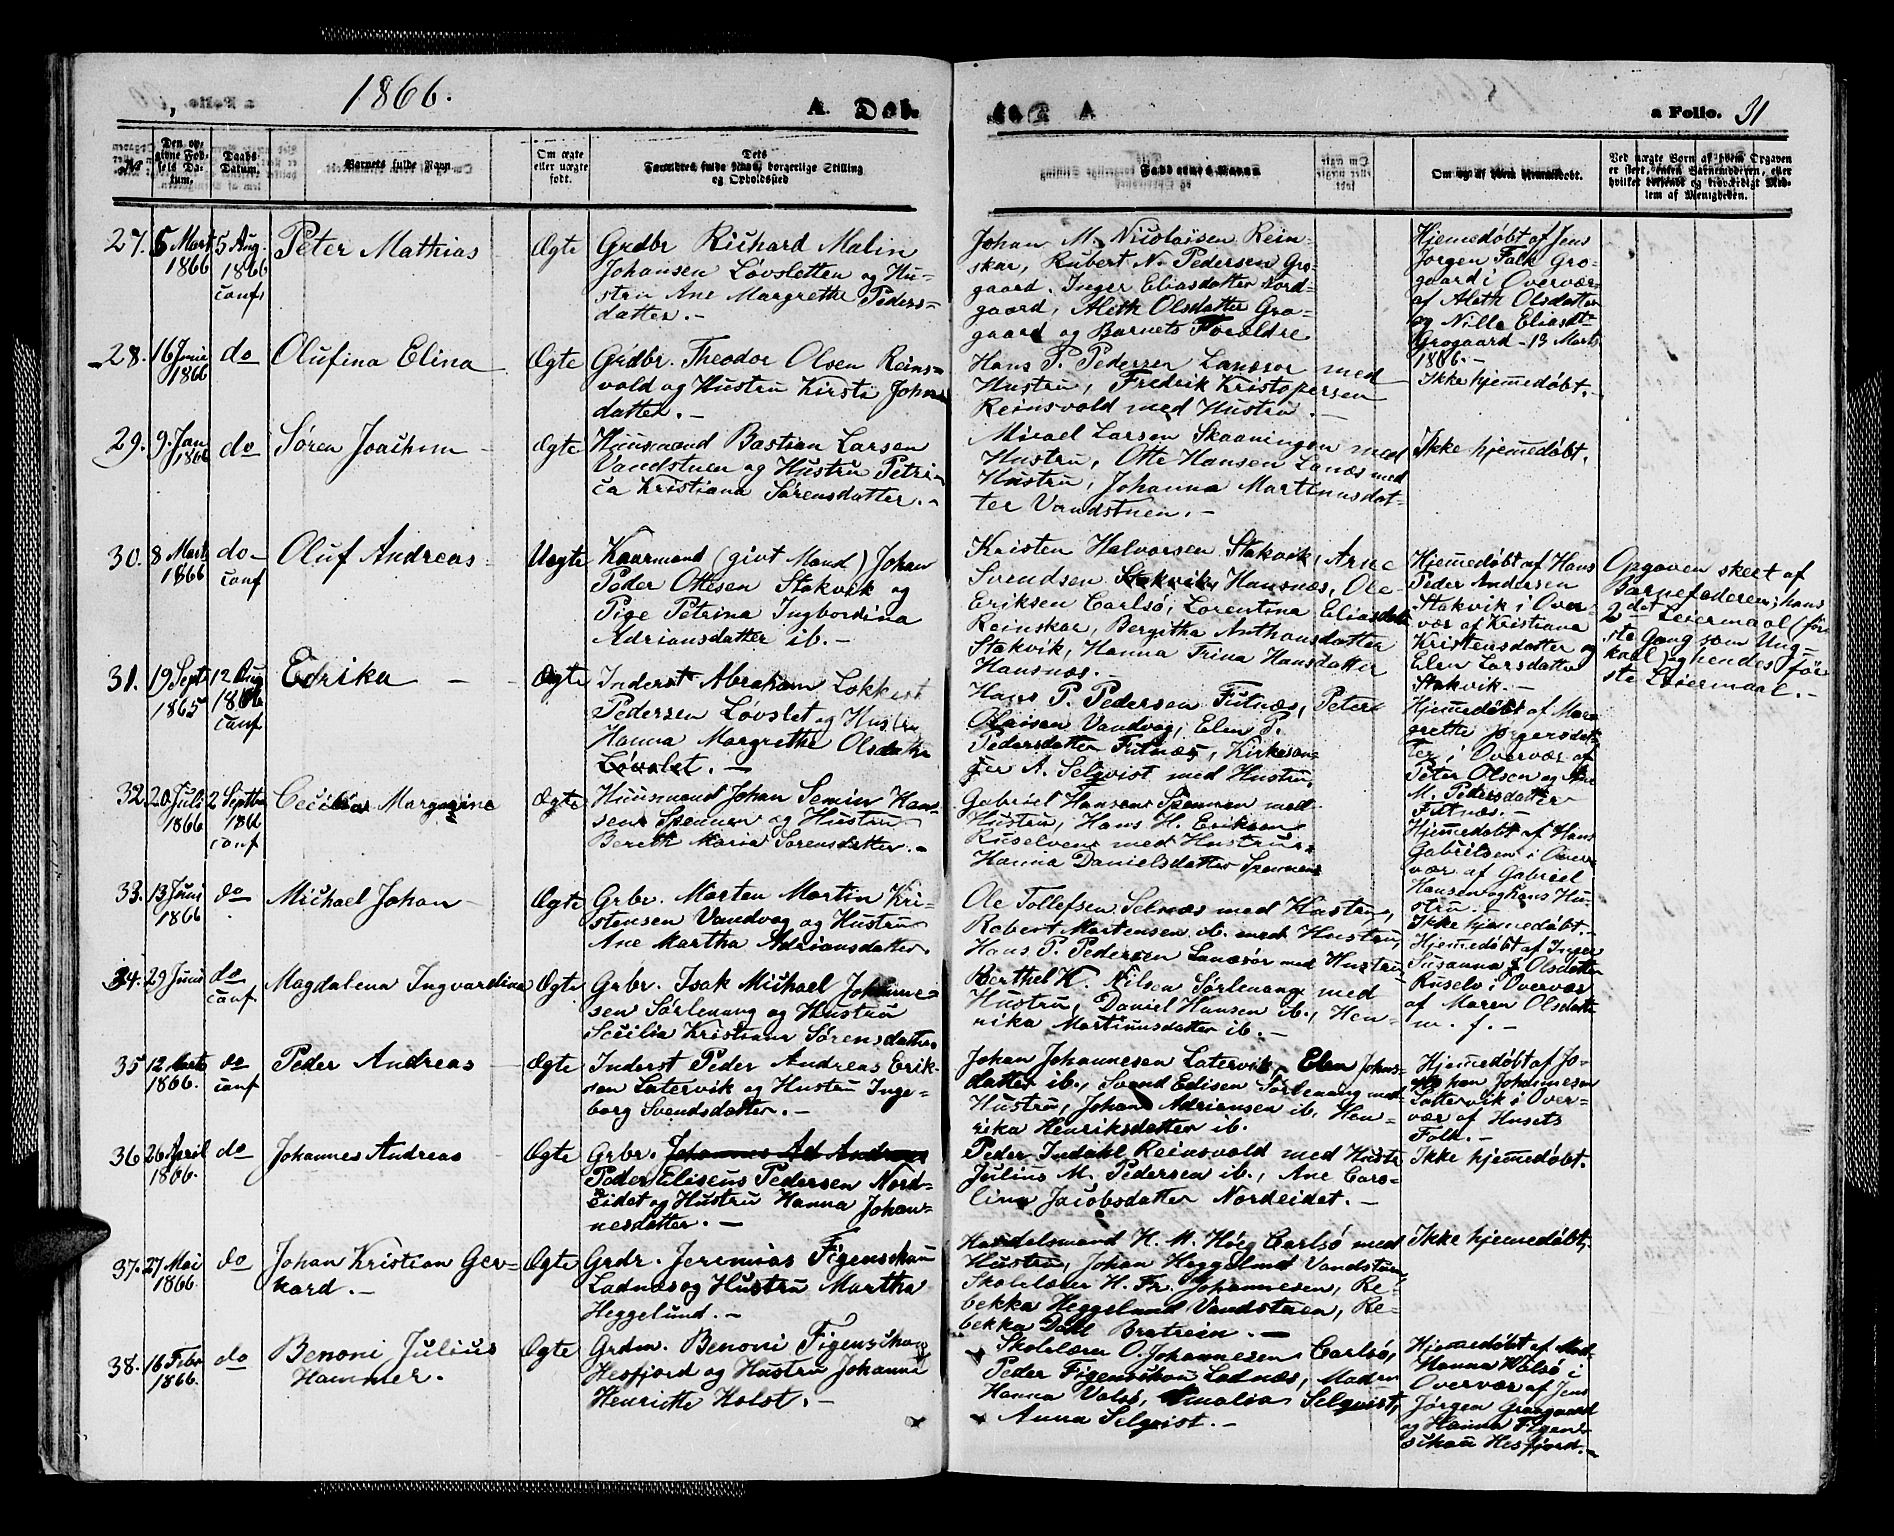 1866.
A. Døb.
a Folio. 31
No
Den op-
givne Fød-
sels Da-
tum.
Daabs
Datum.
Barnets fulde Navn.
Om ægte
eller uægte
født.
Dets
Forældres fulde Navn, borgerlige Stilling
og Opholdssted
Faddernes Navne
Om og af hvem hjemmedøbt.
Ved uægte Børn af hvem Opgaven
er skeet, enten Barnemoderen, eller
hvilket boesende og troværdigt Med-
lem af Menigheden.
27. 5 Mart 1866
5 Aug. 1866 conf
Peter Mathias
Ægte
Grdbr Richard Malin
Johansen Løvsletten og Hu-
stru Ane Margrethe Peders-
datter. -
Johan M. Nicolaisen Rein-
skar, Rubert N. Pedersen Gro-
gaard. Inger Eliasdatter Nord-
gaard, Aleth Olsdatter Gro-
gaard og Barnets Forældre
Hjemedøbt af Jens
Jørgen Falk Gro-
gaard i Overvær
af Aleth Olsdatter
og Nille Eliasdt
Grogaard - 13 Marts
1866. -
28. 16 Juni 1866
do
Olufina Elina
Ægte
Grdbr. Theodor Olsen Reins-
vold og Hustru Kirsti Johns
datter. -
Hans P. Pedersen Lanesør med
Hustru, Fredrik Kristopersen
Reinsvold med Hustru. -
Ikke hjemedøbt. -
29. 9. Jan 1866
do
Søren Joachim
Ægte
Huusmand Bastian Larsen
Vandstuen og Hustru Petri-
ca Kristiana Sørensdatter. -
Micael Larsen Skaaningen med
Hustru, Otte Hansen Lanæs med
Hustru, Johanna Martinusdat-
ter Vandstuen. -
Ikke hjemedøbt.
30. 8 Mart 1866
do - conf
Oluf Andreas
Uægte
Kaarmand (givt Mand) Johan
Peder Ottesen Stakvik og
Pige Petrina Ingbordina
Adriansdatter ib. -
Kristen Halvorsen Stakvik, Arne
Svendsen Hansnæs, Ole
Eriksen Carlsø, Lorentina Eliasdatt
Reinskar, Bergitha Anthonsdatter
Stakvik, Hanna Trina Hansdatter
Hansnæs.
Hjemedøbt af Hans
Peder Andersen
Stakvik i Over-
vær af Kristiana
Kristensdatter og
Elen Larsdatter
Stakvik. -
Opgaven skeet af
Barnefaderen; hans
2det Leiermaal (før
ste Gang som Ung-
karl) og hendes før-
ste Leiermaal. -
31. 19 Sept 1865
12 Aug 1866 conf
Edrika
Ægte
Inderst Abraham Lokkert
Pedersen Løvslet og Hustru
Hanna Margrethe Olsdatter
Løvslet. -
Hans P. Pedersen Futnæs, Peter
Olaisen Vandvag, Elen P.
Pedersdatter Futnæs, Kirkesan-
ger A. Selqvist med Hustru,
Hjemedøbt af Mar-
grethe Jørgensdat-
ter i Overvær af
Peter Olsen og Ane
M. Pedersdatter
Futnæs. -
32. 20. Juli 1866
2 Septbr 1866 conf
Cecilia Margazine
Ægte
Huusmand Johan Semin Han-
sen Spennen og Hustru
Berith Maria Sørensdatter. -
Gabriel Hansen Spennen med
Hustru, Hans H. Eriksen
Ruselven med Hustru,
Hanna Danielsdatter Spennen
Hjemedøbt af Hans
Gabrilsen i Over-
vær af Gabriel
Hansen og hans Hu-
stru. -
33. 13 Juni 1866
do
Michael Johan
Ægte
Grbr. Morten Martin Kri-
stensen Vandvag og Hustru
Ane Martha Adriansdatter
Ole Tollefsen Selnæs med Hustru,
Robert Mortensen ib. med Hustru,
Hans P. Pedersen Lanesør med Hustru
Ikke hjemedøbt. -
34. 29 Juni
do conf
Magdalena Ingvardina
Ægte
Grbr. Isak Michael Johanne-
sen Sørlenang og Hustru
Secilia Kristiane Sørensdatter
Berthel K. Nilsen Sørlenang med
Hustru, Daniel Hansen ib., Hen-
rika Martinusdatter ib. -
Hjemedøbt af Inger
Susanna Olsdatter
Ruselv i Overvær
af Maren Olsdatter
m. f. -
35. 12 Marts 1866.
do conf
Peder Andreas
Ægte
Inderst Peder Andreas Erik-
sen Latervik og Hustru Inge-
borg Svendsdatter. -
Johan Johannesen Latervik, Elen Johns-
datter ib., Svend Edisen Sørlenang med
Hustru, Johan Adriansen ib, Hen-
rika Henriksdatter ib.
Hjemedøbt af Jo-
han Johannesen
Lattervik i Over-
vær af Husets
Folk. -
36. 26 April 1866.
do
Johannes Andreas
Ægte
Grbr. Johannes Ad Andreas
Peder Eliseus Pedersen Nord-
eidet og Hustru Hanna Johan-
nesdatter. -
Peder Indahl Reinsvold med Hustr
Julius M. Pedersen ib., Ane Caro-
lina Jacobsdatter Nordeidet. -
Ikke hjemedøbt.
37. 27 Mai 1866.
do
Johan Kristian Ger-
hard. -
Ægte
Grdr. Jeremias Figenschau
Ladnæs og Hustru Martha
Heggelund. -
Handelsmand H. M. Høeg Carlsø med
Hustru, Johan Heggelund Vandstuen,
Skolelærer H. Fr. Johannesen, Re-
bekka Heggelund Vandstuen, Re-
bekka Dahl Bratrein. -
Ikke hjemedøbt.
38. 16 Febr 1866.
do
Benoni Julius
Hammer.
Ægte
Grdm. Benoni Figenschau
Hesfjord og Hustru Johanna
Henriette Holst. -
Skolelærer O. Johannesen Carlsø,
Peder Figenschou Ladnæs, Madm
Hanna Valsø, Amalia Selqvist,
Anna Selqvist. -
Hjemedøbt af Mad.
Hanna Walsø i
Overvær af Jens
Jørgen Graagaard
og Hanna Figen-
schau Hesfjord. -